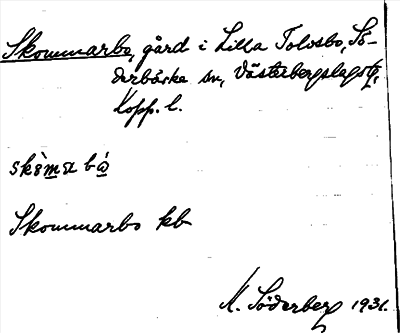 Skommarbo, gård i Lilla Tolvsbo, Sö-
derbärke sn, Västerbergslags tg,
Kopp. l.
Skommarbo kb
M. Söderberg 1931.